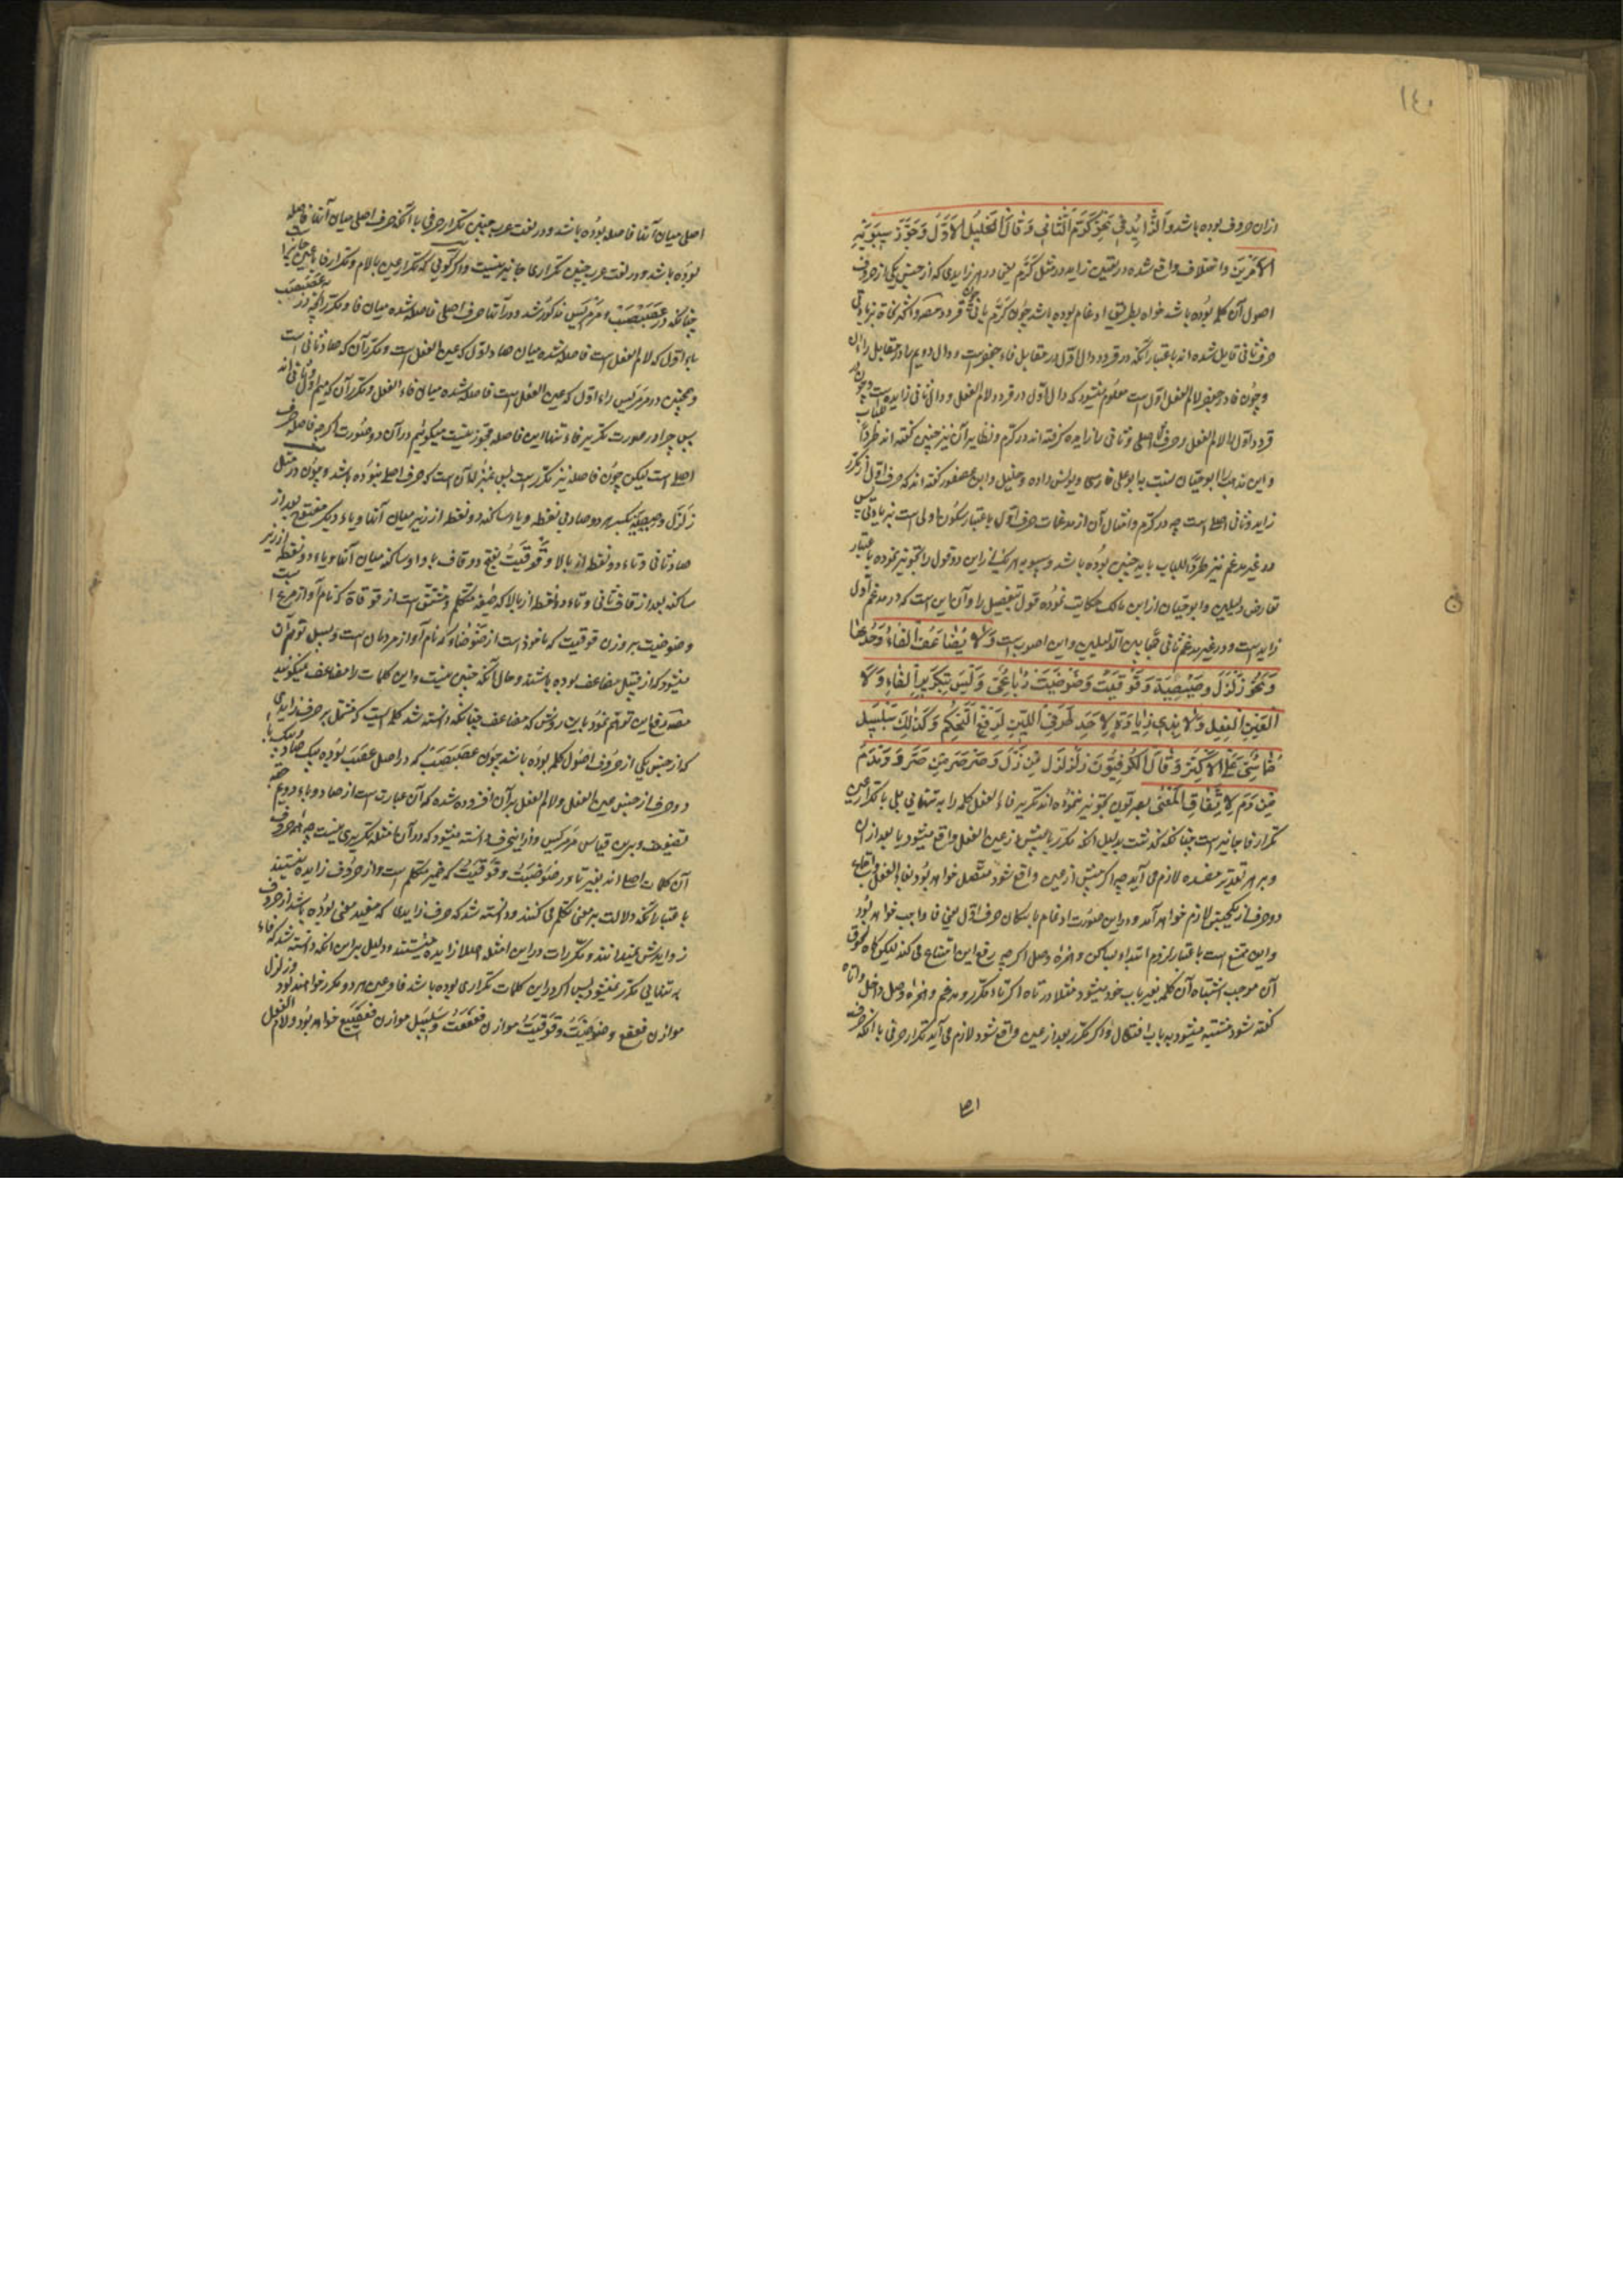 ١٤٠
ازان حروف بوده باشد وَالزَّائِدُ فِي نَحْوِ كَرَّمَ الثَّانِي وَقَالَ الْخَلِيلُ الْأَوَّلُ وَجَوَّزَ سِيبَوَيْهِ
الْأَمْرَيْنِ واختلاف واقع شده در تعیین زاید در مثل کرّم یعنی در هر زایدی که از جنس یکی از حروف
اصول آن کلمه بوده باشد خواه بطریق ادغام بوده باشد چون کرّم یا نی چون قردد
حرف ثانی قایل شده اند باعتبار آنکه در قردد دال اول در مقابل فاء جعفرست و دال دویم با در مقابل راء آن
وچون فاء جعفر لام الفعل اول است معلوم میشود که دال اول در قردد لام الفعل و دال ثانی زایده است
قردد اول لام الفعل وحرف اصلی و ثانی را زایده گرفته اند در کرّم ونظایر آن نیز چنین گفته اند طرداً للباب
واین مذهب را ابو حیان نسبت با بو علی فارسی ویونس داده و خلیل وابن عصفور گفته اند که حرف اول از مکرر
زاید وثانی اصلی است چه در کرّم وامثال آن از مدغمات حرف اول باعتبار سکون اولی است بزیادتی پس
در غیر مدغم نیز طرداً للباب باید چنین بوده باشد وسیبویه هر یکی از این دو قول را تجویز نموده باعتبار
تعارض دلیلین وابو حیان از ابن مالک حکایت نموده قول تفصیل را وآن این است که در مدغم اول
زایدست ودر غیر مدغم ثانی جمعاً بین الدلیلین واین اصوب است وَلَا يُضَاعَفُ الْفَاءُ وَحْدَهَا
وَنَحْوُ زَلْزَلَ وَصِيصِيَةٍ وَقَوْقَيْتُ وَضَوْضَيْتُ رُبَاعِيٌّ وَلَيْسَ بِتَكْرِيرٍ الْفَاءِ وَلَا
الْعَيْنِ لِلْفَصْلِ وَلَا بِذِي زِيَادَةٍ لِأَحَدِ حَرْفَيِ اللِّينِ لِدَفْعِ التَّحَكُّمِ وَكَذَلِكَ سَلْسَبِيلٌ
خُمَاسِيٌّ عَلَى الْأَكْثَرِ وَقَالَ الْكُوفِيُّونَ زَلْزَلَ مِنْ زَلَّ وَصَرْصَرَ مِنْ صَرَّ وَدَمْدَمَ
مِنْ دَمَّ لِاتِّفَاقِ الْمَعْنَى بصریون تجویز ننموده اند تکریر فاء الفعل کلمه را به تنهایی بلی با تکرار عین
تکرار فا جایز است چنانکه گذشت بدلیل آنکه مکرر یا پیش از عین الفعل واقع میشود یا بعد از آن
وبر هر تقدیر مفسده لازم می آید چه اگر پیش از عین واقع شود متصل خواهد بود بفاء الفعل واجتماع
دو حرف از یک جنس لازم خواهد آمد ودر این صورت ادغام باسکان حرف اول یعنی فا واجب خواهد بود
واین ممتنع است باعتبار لزوم ابتداء بساکن وهمزه وصل اگر چه رفع این امتناع می کند لیکن گاه لحوق
آن موجب اشتباه آن کلمه بغیر باب خود میشود مثلا در تاه اگر تاء مکرر ومدغم وهمزه وصل داخل واتاه
گفته شود مشتبه میشود به باب افتعال واگر مکرر بعد از عین واقع شود لازم می آید تکرار حرفی با آنکه حرف
اصلی
اصلی میان آنها فاصله بوده باشد ودر لغت عرب چنین تکرار حرفی با آنکه حرف اصلی میان آنها فاصله
بوده باشد ودر لغت عرب چنین تکراری جایز نیست واگر گویی که تکرار عین با لام وتکرار فا با عین جایز است
چنانکه در عصبصب ومرمریس مذکور شد ودر آنها حرف اصلی فاصله شده میان فا ومکرر چه در عصبصب
باء اول که لام الفعل است فاصله شده میان صاد اول که عین الفعل است ومکرر آن که صاد ثانی است
وهمچنین در مرمریس راء اول که عین الفعل است فاصله شده میان فاء الفعل ومکرر آن که میم اول ثانی اند
پس چرا در صورت تکریر فاء تنها این فاصله مجوز نیست میگوئیم در آن دو صورت اگر چه فاصله حرف
اصلی است لیکن چون فاصله نیز مکرر است پس بمنزله آن است که حرف اصلی نبوده باشد وچون در مثل
زلزل وصیصیه بکسر هر دو صاد بی نقطه ویاء ساکنه دو نقطه از زیر میان آنها ویاء دیگر مفتوح بعد از
صاد ثانی وتاء دو نقطه از بالا وقوقیت بفتح دو قاف و واو ساکنه میان آنها ویاء دو نقطه از زیر
ساکنه بعد از قاف ثانی وتاء دو نقطه از بالا که صیغه متکلم ومشتق است از قوقاة که نام آواز مرغ است
وضوضیت بر وزن قوقیت که ماخوذ است از ضوضاء که نام آواز مردمان است وسلسبیل توهم آن
میشود که از قبیل مضاعف بوده باشند وحال آنکه چنین نیست واین کلمات را مضاعف میگویند
مصنف دفع این توهم نمود باین روش که مضاعف چنانکه دانسته شد کلمه ایست که مشتمل بر حرف زایدی
که از جنس یکی از حروف اصول کلمه بوده باشد چون عصبصب که در اصل عصب بوده بیک صاد ویک با
دو حرف از جنس عین الفعل ولام الفعل بر آن افزوده شده که آن عبارت است از صاد وباء دویم
وبرین قیاس مرمریس واز این حرف دانسته میشود که در آن امثله تکریری نیست چه همه حروف
آن کلمات اصلی اند بغیر تا در ضوضیت وقوقیت که ضمیر متکلم است واز حروف زایده نیستند
باعتبار آنکه دلالت بر معنی تکلم می کنند ودانسته شد که حرف زایدی که مفید معنی بوده باشد از حروف
زوایدش نمیدانند ومکررات در این امثله اصلا زایده نیستند ودلیل بر این آنکه دانسته شد که فاء
به تنهایی مکرر نمیشود پس اگر در این کلمات تکراری بوده باشد فا وعین هر دو مکرر خواهند بود وزلزل
موازن فعفع وضوضیت وقوقیت موازن فعفعت وسلسبیل موازن فعفعیل خواهد بود ولام الفعل